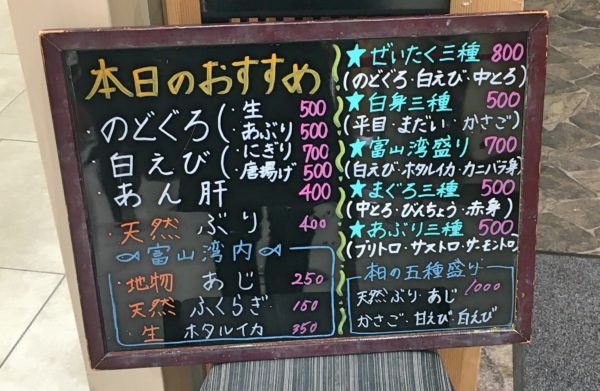 本日のおすすめ
のどぐろ(・生 500
・あぶり 500
白えび(・にぎり 700
・唐揚げ 500
あん肝 400
・天然 ぶり 400
富山湾内
・地物 あじ 250
・天然 ふくらぎ 150
・生 ホタルイカ 350
★ぜいたく三種 800
(のどぐろ・白えび・中とろ)
★白身三種 500
(平目・まだい・かさご)
★富山湾盛り 700
(白えび・ホタルイカ・カニバラ身)
★まぐろ三種 500
(中とろ・びんちょう・赤身)
★あぶり三種 500
(ブリトロ・サストロ・サーモントロ)
粕の五種盛り
1000
天然ぶり・あじ
かさご・甘えび・白えび